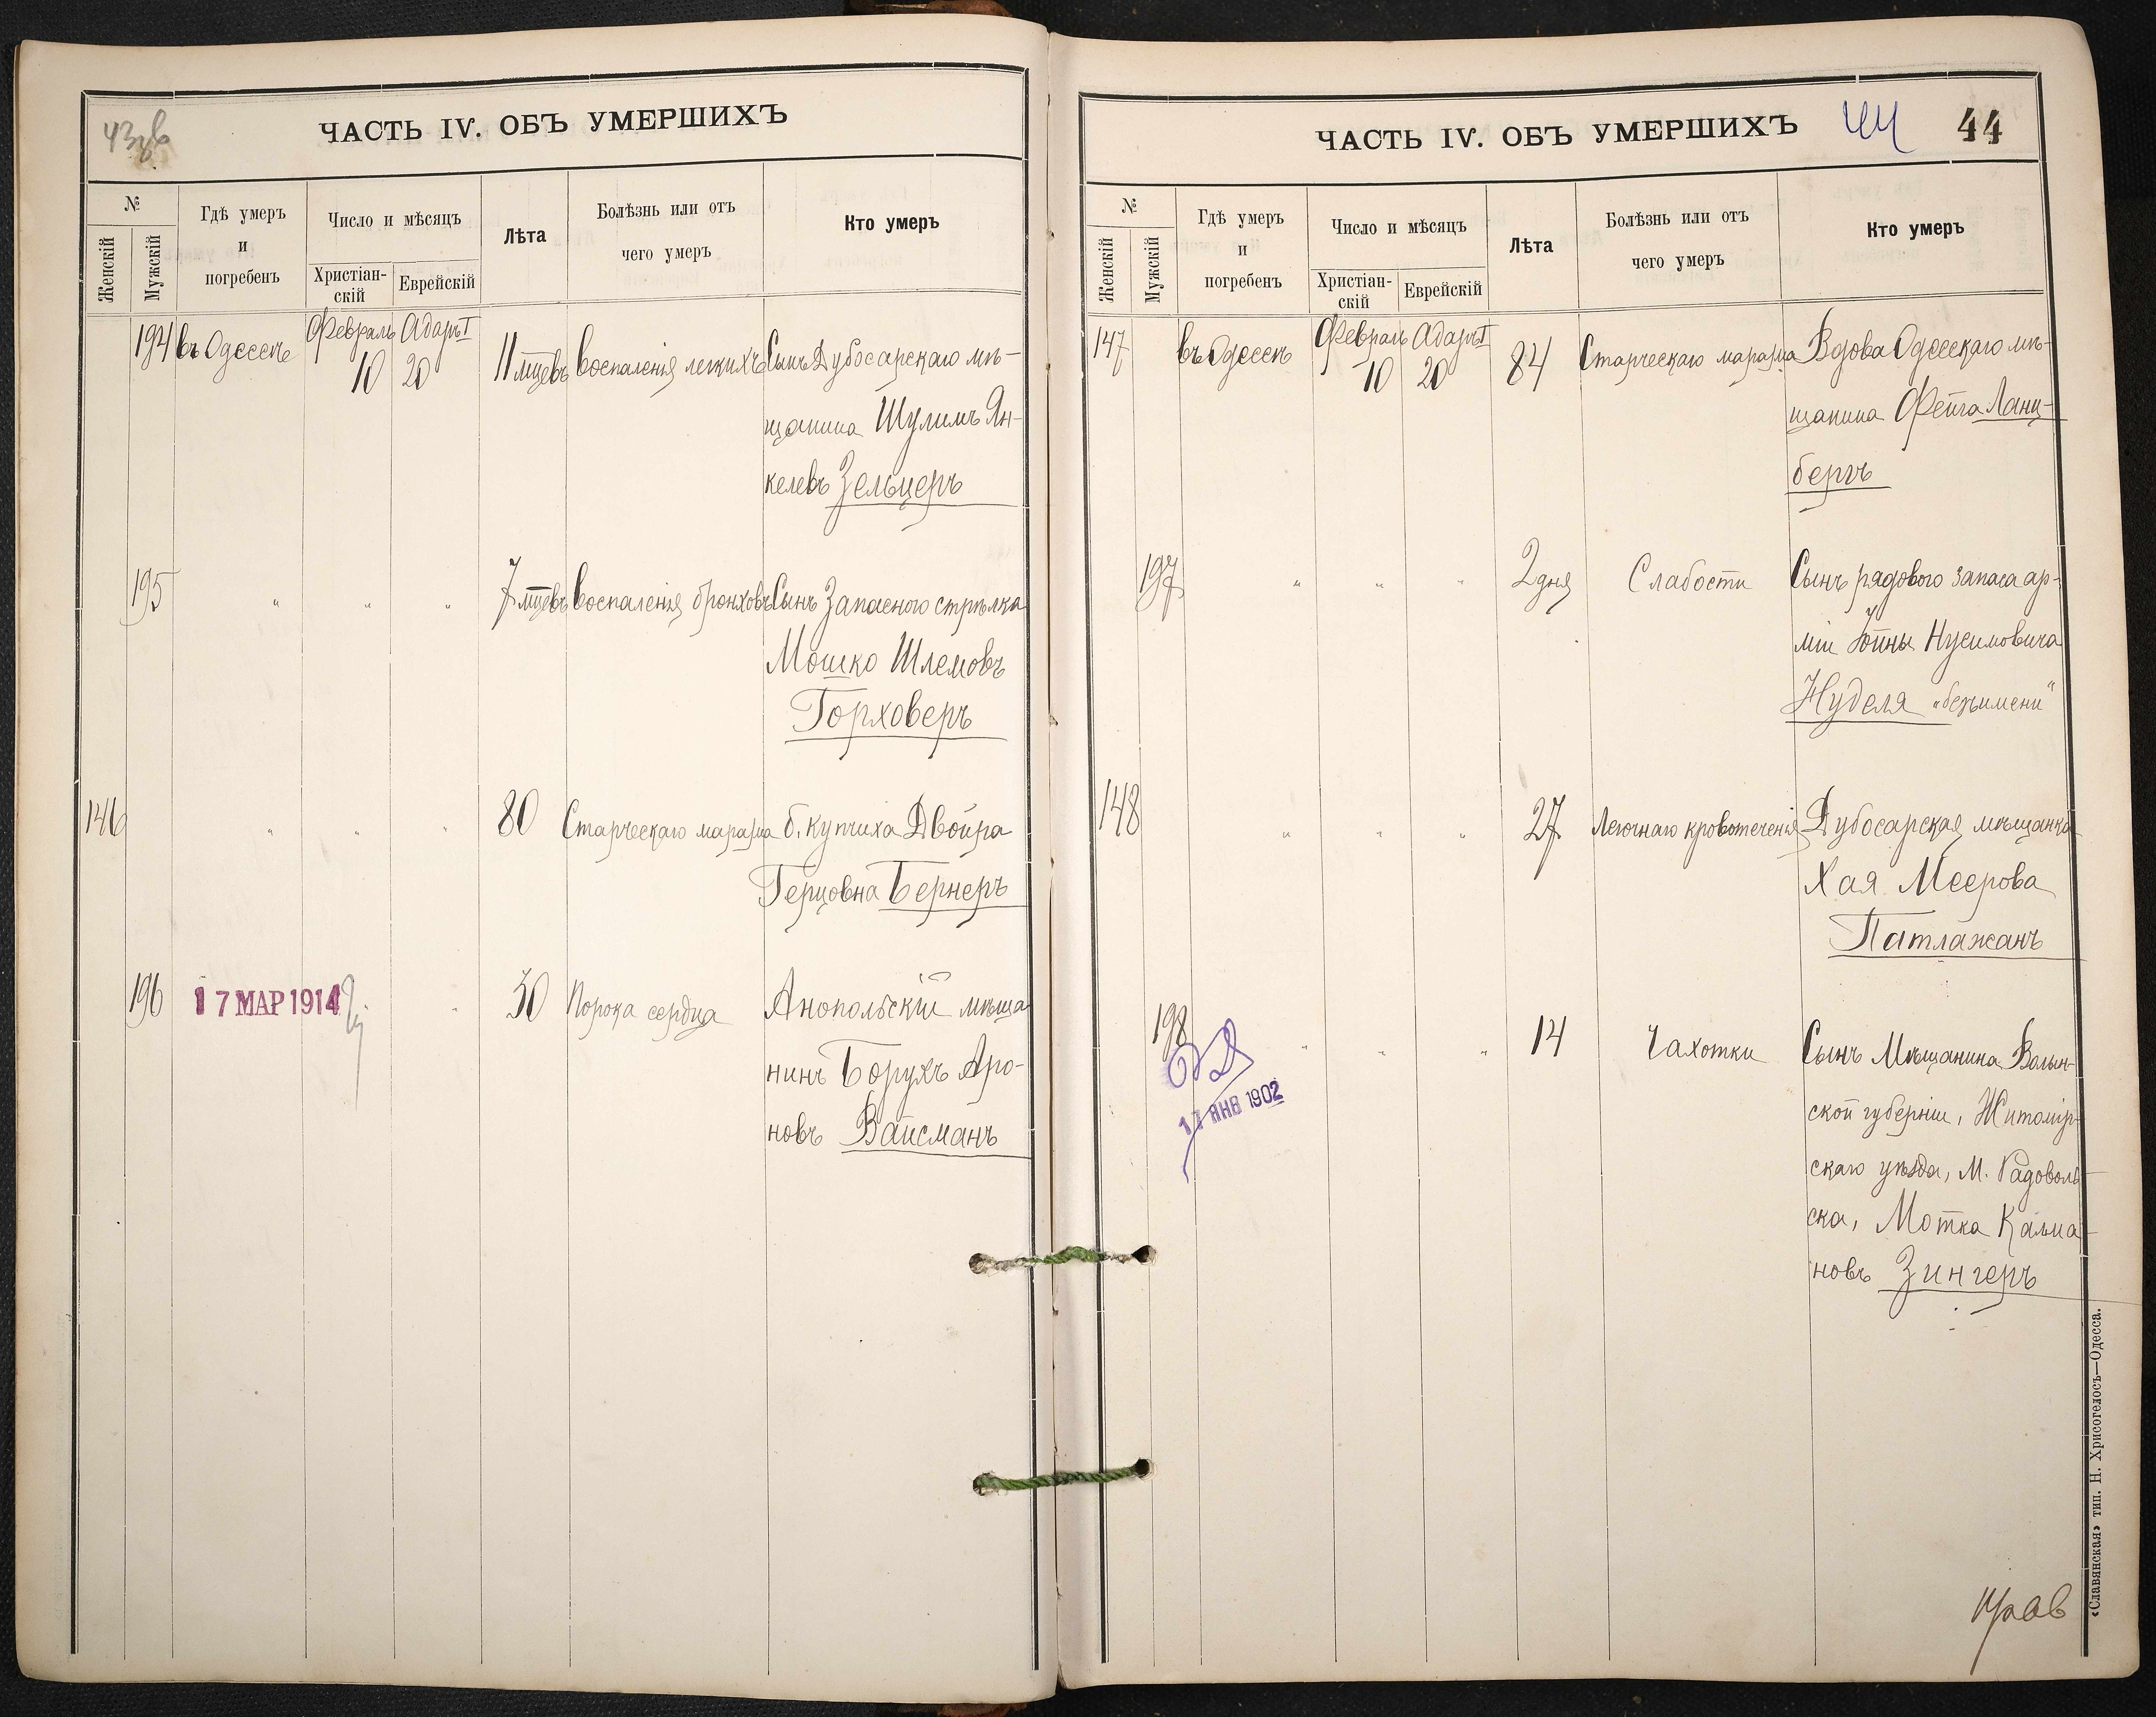 43 об
ЧАСТЬ IV. ОБЪ УМЕРШИХЪ
№
Женскій
Мужскій
Гдѣ умеръ
и
погребенъ
Число и мѣсяцъ
Христіан-
скій
Еврейскій
Лѣта
Болѣзнь или отъ
чего умеръ
Кто умеръ
194 въ Одессѣ Февраль 10 Адаръ I 20 11 мцевъ воспаленія легкихъ Сынъ Дубосарскаго мѣ-
щанина Шулимъ Ян-
келевъ Зельцеръ
195 " " " 7 мцевъ воспаленія бронховъ Сынъ Запасного стрѣлка
Мошко Шлемовъ
Горховеръ
146 " " " 80 Старческаго маразма б. купчиха Двойра
Герцовна Бернеръ
196 17 МАР 1914 " 50 Порока сердца Анопольскій мѣща-
нинъ Борухъ Аро-
новъ Вайсманъ
ЧАСТЬ IV. ОБЪ УМЕРШИХЪ
44 44
№
Женскій
Мужскій
Гдѣ умеръ
и
погребенъ
Число и мѣсяцъ
Христіан-
скій
Еврейскій
Лѣта
Болѣзнь или отъ
чего умеръ
Кто умеръ
147 въ Одессѣ Февраль 10 Адаръ I 20 84 Старческаго маразма Вдова Одесскаго мѣ-
щанина Фейга Ланц-
бергъ
197 " " " 2 дня Слабости Сынъ рядового запаса ар-
міи Іойны Нусимовича
Нуделя „безъимени"
148 " " " 27 Легочнаго кровотеченія Дубосарская мѣщанка
Хая Меерова
Патлажанъ
198 " " " 14 Чахотки Сынъ Мѣщанина Волын-
ской губерніи, Житомір-
скаго уѣзда, М. Радоволь-
ска, Мотка Кальма-
новъ Зингеръ
17 ЯНВ 1902
«Славянская» тип. Н. Хрисогелосъ—Одесса.